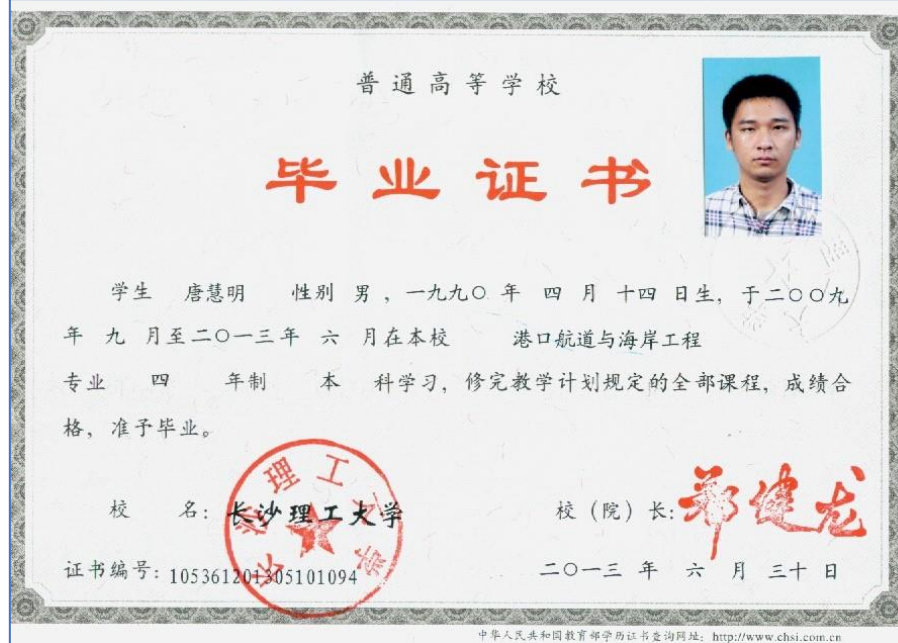 普通高等学校
毕业证书
学生 唐慧明 性别 男，一九九〇年 四 月 十四 日生，于二〇〇九
年 九 月至二〇一三年 六 月在本校 港口航道与海岸工程
专业 四 年制 本 科学习，修完教学计划规定的全部课程，成绩合
格，准予毕业。
校 名：长沙理工大学
校（院）长：郑健龙
证书编号：105361201305101094
二〇一三 年 六 月 三十 日
长沙理工大学
中华人民共和国教育部学历证书查询网址：http://www.chsi.com.cn